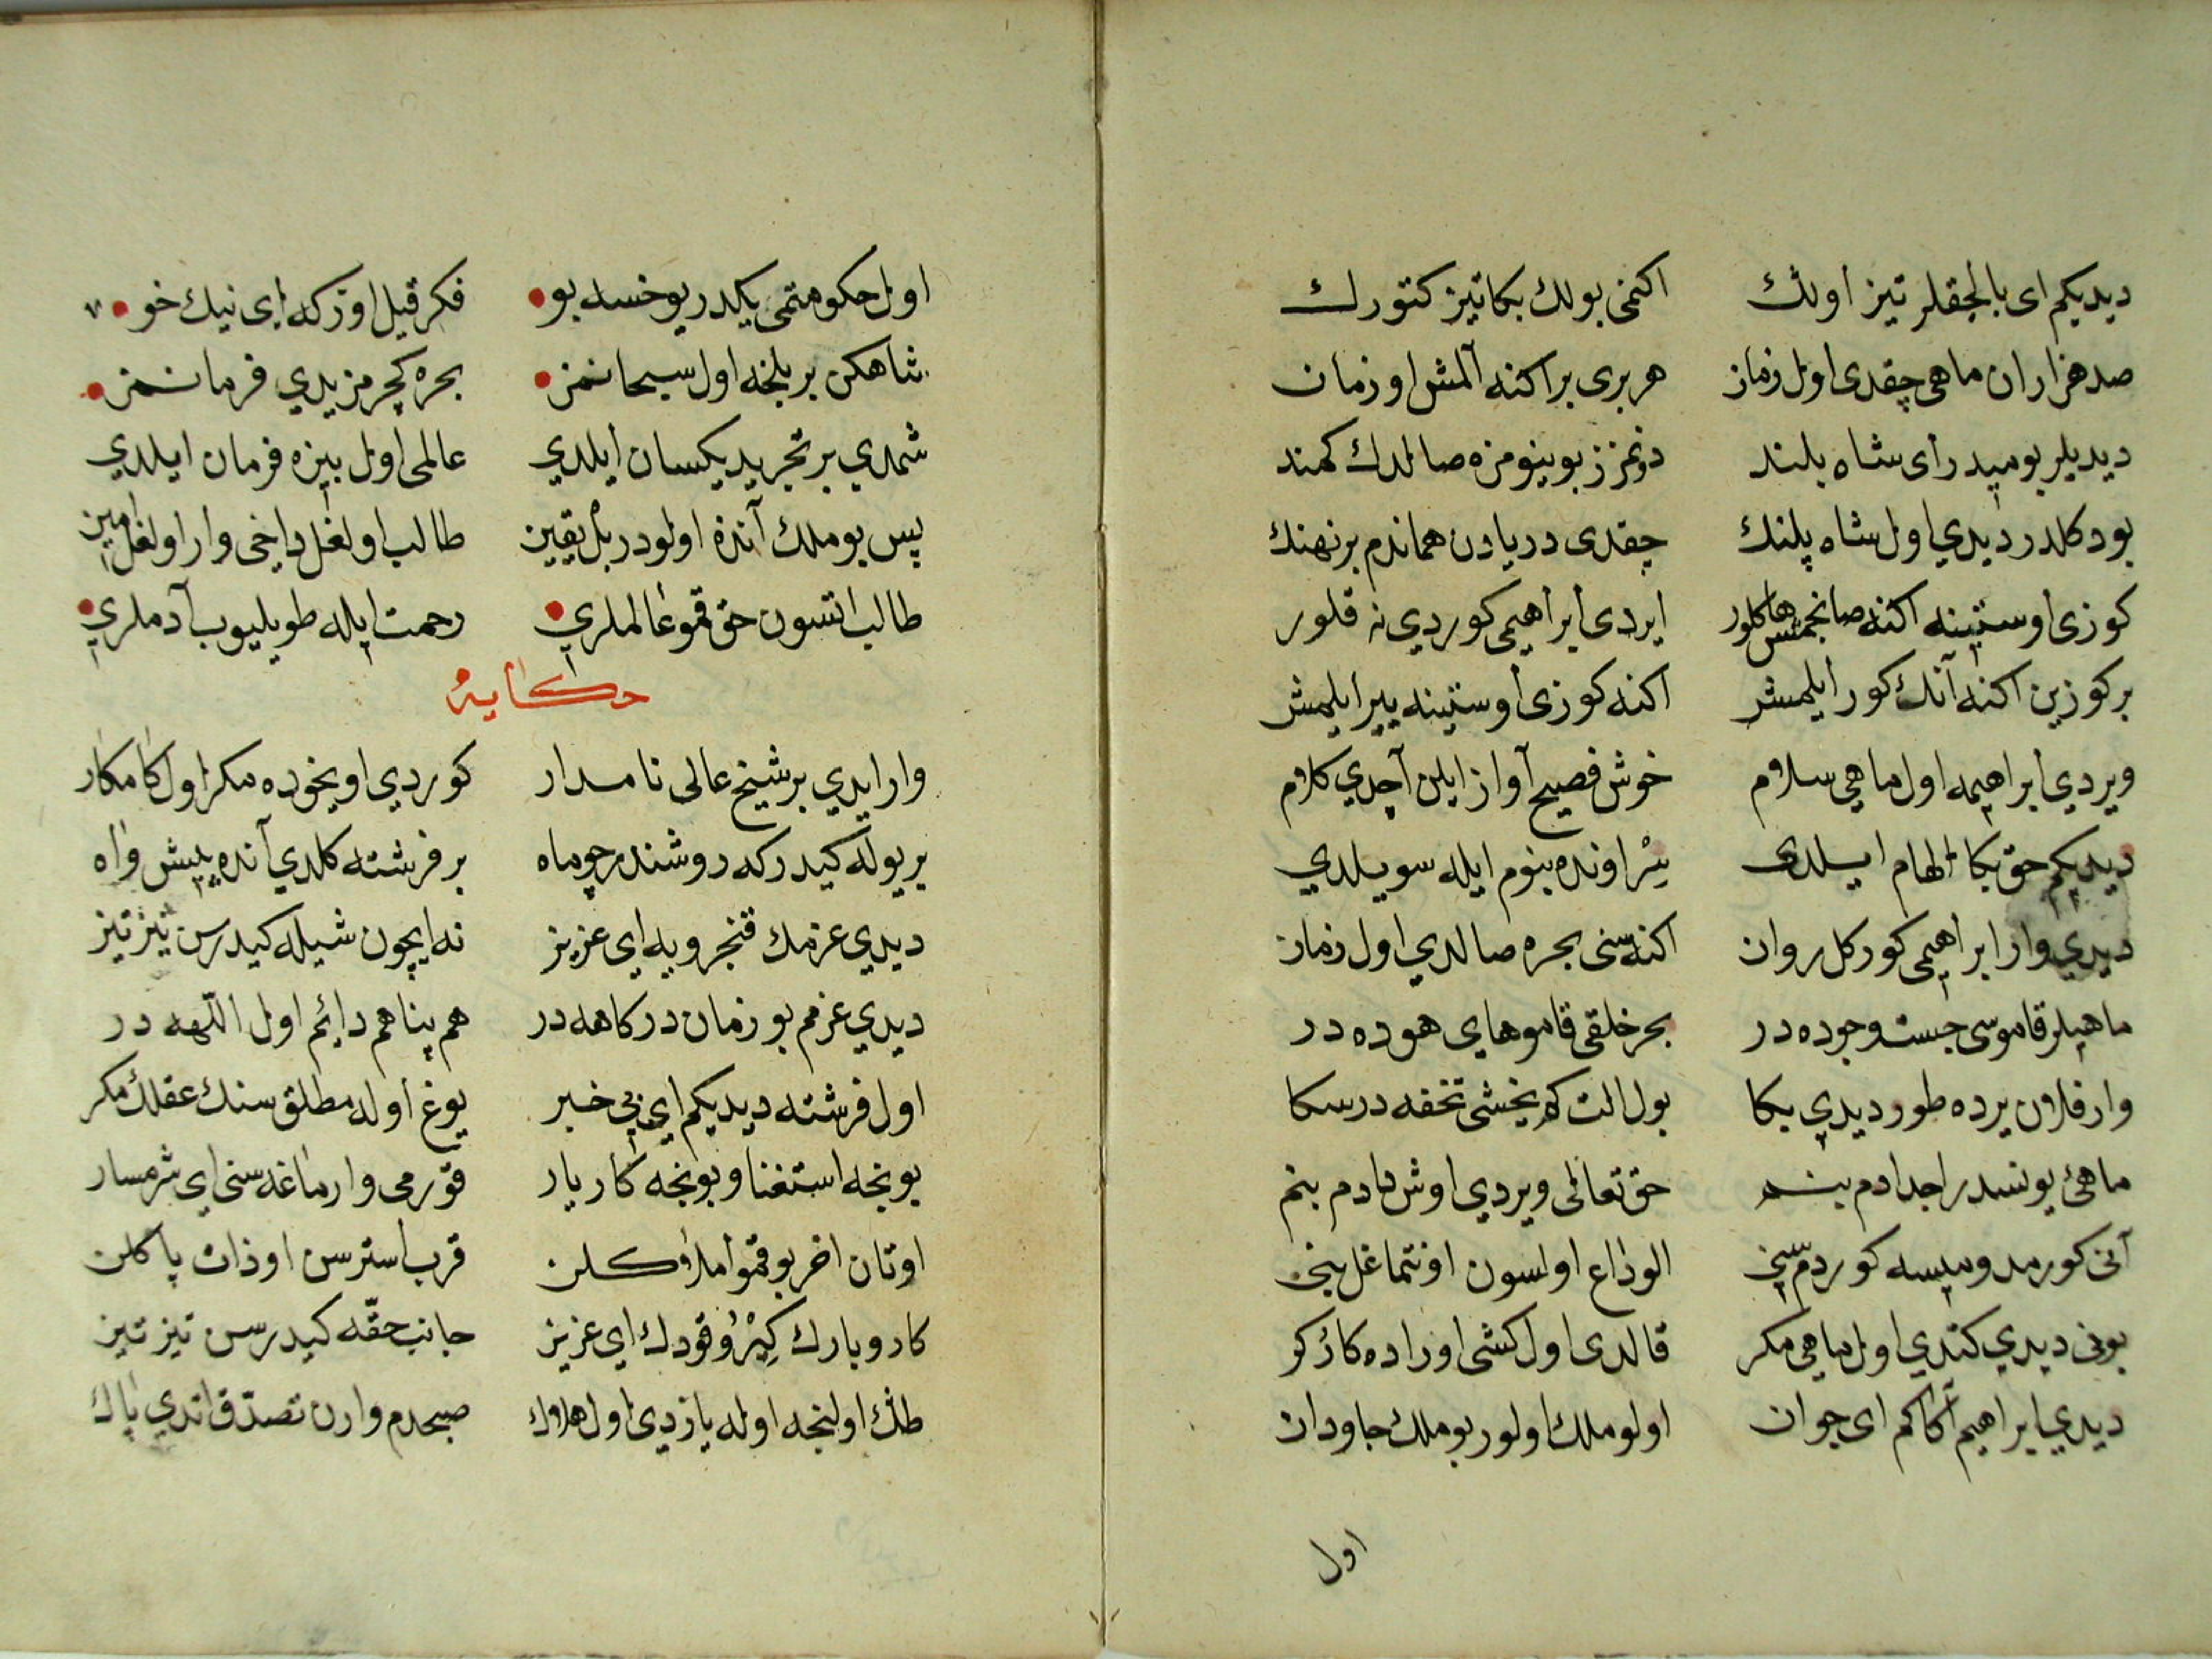 ديديكم اى بالجقلر تيز اولڭ اكنمى بولك بكا تيز كتورك
صد هزاران ماهى چقدى اول زمان هر برى بر اكنه آلمش او زمان
ديديلر بوميدر اى شاه بلند بوينومزه صالدك كمند
بو دكلدر ديدي اول شاه پلنك چقدى دريادن هماندم بر نهنك
كوزى اوستينه اكنه صانجمش كلور ايردى ابراهيمى كوردي نه قلور
بر كوزين اكنه آنك كور ايلمش اكنه كوزى اوستينه يير ايلمش
ويردي ابراهيمه اول ماهي سلام خوش فصيح آواز ايلن آچدي كلام
ديديكم حق بكا الهام ايلدى سر اونده بنوم ايله سويلدي
ديدي وار ابراهيمى كور كل روان اكنه سنى بحره صالدي اول زمان
ماهيلر قاموسى جست وجوده در بحر خلقى قامو هاى هوده در
وار فلان يرده طور ديدي بكا بول الت كم يخشى تحفه در سكا
ماهئ يونسدر اجدادم بنم حق تعالى ويردي اوش دادم بنم
آنى كورمدوميسه كوردم سنى الوداع اولسون اونتماغل بنى
بونى ديدي كتدي اول ماهى مكر قالدى اول كشى اوراده كارّكر
ديدي ابراهيم آكا كم اى جوان اولو ملك اولور بو ملك جاودان
اول
اول حكومتمى يكدر يوخسه بو فكر قيل اوزكه اى نيك خو ٧
شاهكن بر بلخه اول سبحانمز بحره كچرمزيدي فرمانمز
شمدي بر تجريد يكسان ايلدي عالمى اول بيزه فرمان ايلدي
پس بو ملك آنده اولودر بل يقين طالب اولغل داخى وار اولغل امين
طالب اتسون حق قمو عالملري رحمت ايله طويليوب آدملري
حكايه
وار ايدي بر شيخ عالى نامدار كوردي اويخوده مكر اول كامكار
بر يوله كيدركه روشندر چو ماه بر فرشته كلدي آنده پيش واه
ديدي عزمك قنجرويه اى عزيز نه ايچون شيله كيدرسن تيز تيز
ديدي عزمم بو زمان دركاهه در هم پناهم دائم اول اللّهه در
اول فرشته ديديكم اي بى خبر يوغ اوله مطلق سنك عقلك مكر
بونجه استغنا و بونجه كار يار قورمى وارماغه سنى اى شرمسار
اوتان اخر بو قمو املاكلن قرب استرسن او ذات پاكلن
كار و بارك كيرو قودك اى عزيز جانب حقّه كيدرسن تيز تيز
طڭ اولينجه اوله يازدي اول هلاك صبحدم وارن تصدّق اتدي پاك